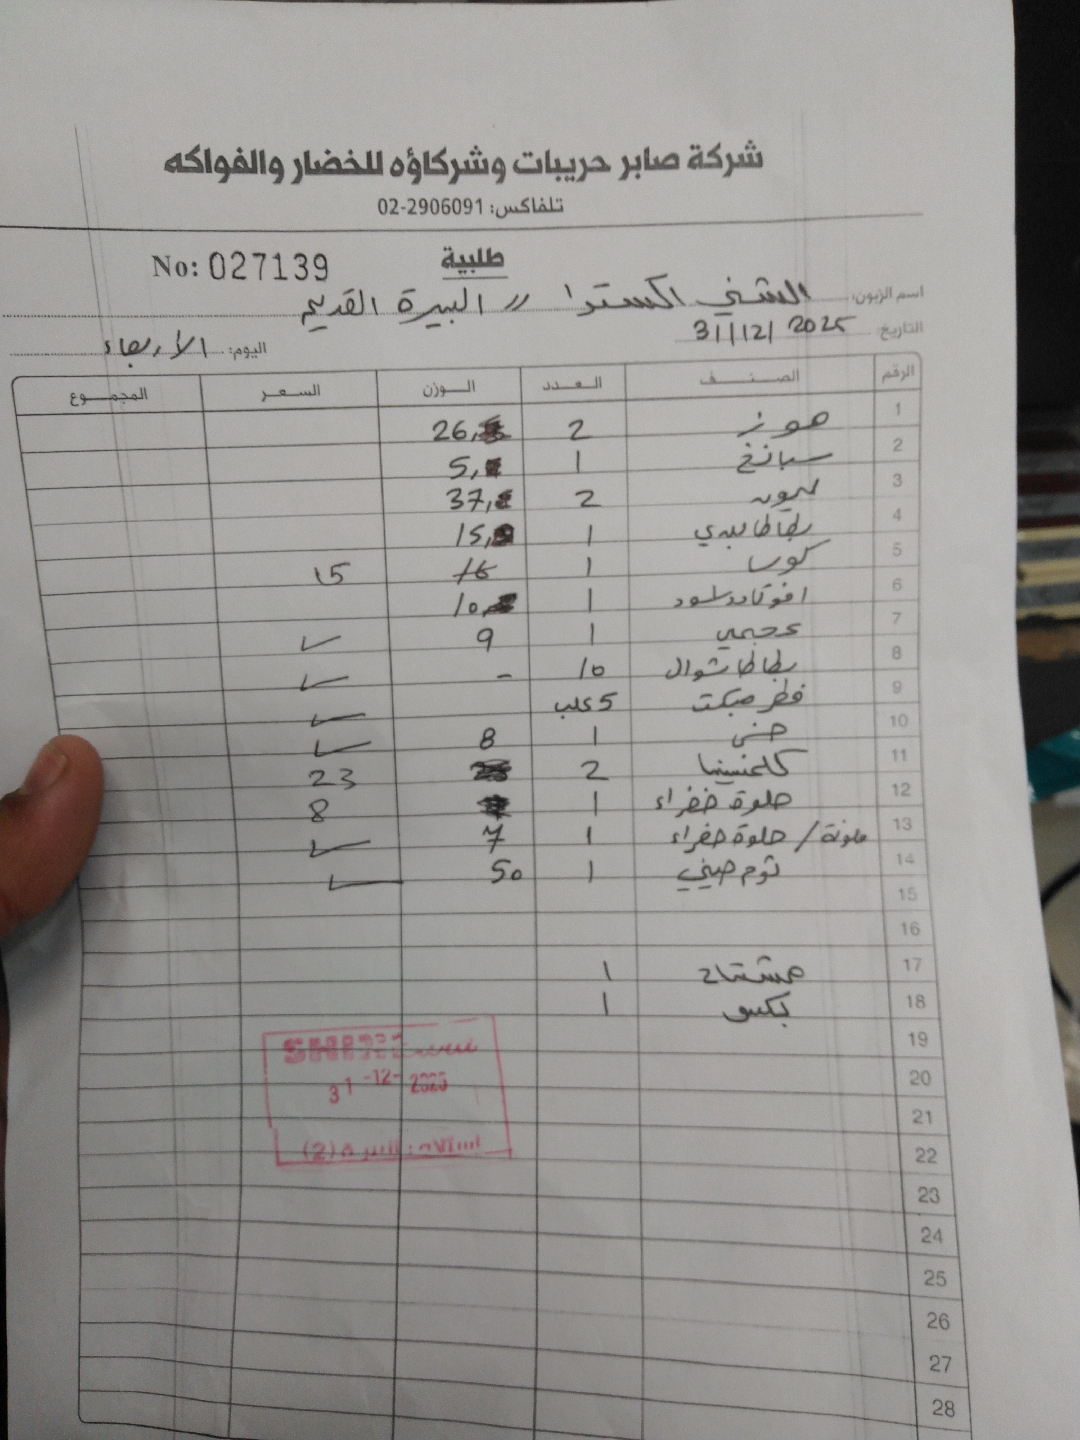 شركة صابر حريبات وشركاؤه للخضار والفواكه
تلفاكس: 02-2906091
طلبية No: 027139
اسم الزبون: الشني اكسترا // البيرة القديم
التاريخ: 31/12/2025 اليوم: الأربعاء
الرقم الصنف العدد الوزن السعر المجموع
1 موز 2 26,
2 سبانخ 1 5,
3 ليمون 2 37,
4 بطاطا بلدي 1 15,
5 كوسا 1 16 15
6 افوكادو اسود 1 10
7 عجمي 1 9 ✓
8 بطاطا شوال 10 - ✓
9 فطر مبكت 5 علب ✓
10 1 8 ✓
11 كلمنتينا 2 23
12 حلوة خضراء 1 8
13 ملونة / حلوة خضراء 1 7 ✓
14 ثوم صيني 1 50 ✓
15
16
17 مشتاح 1
18 بكس 1
19
20
21
22
23
24
25
26
27
28
31-12-2025
استلام: البيرة (2)